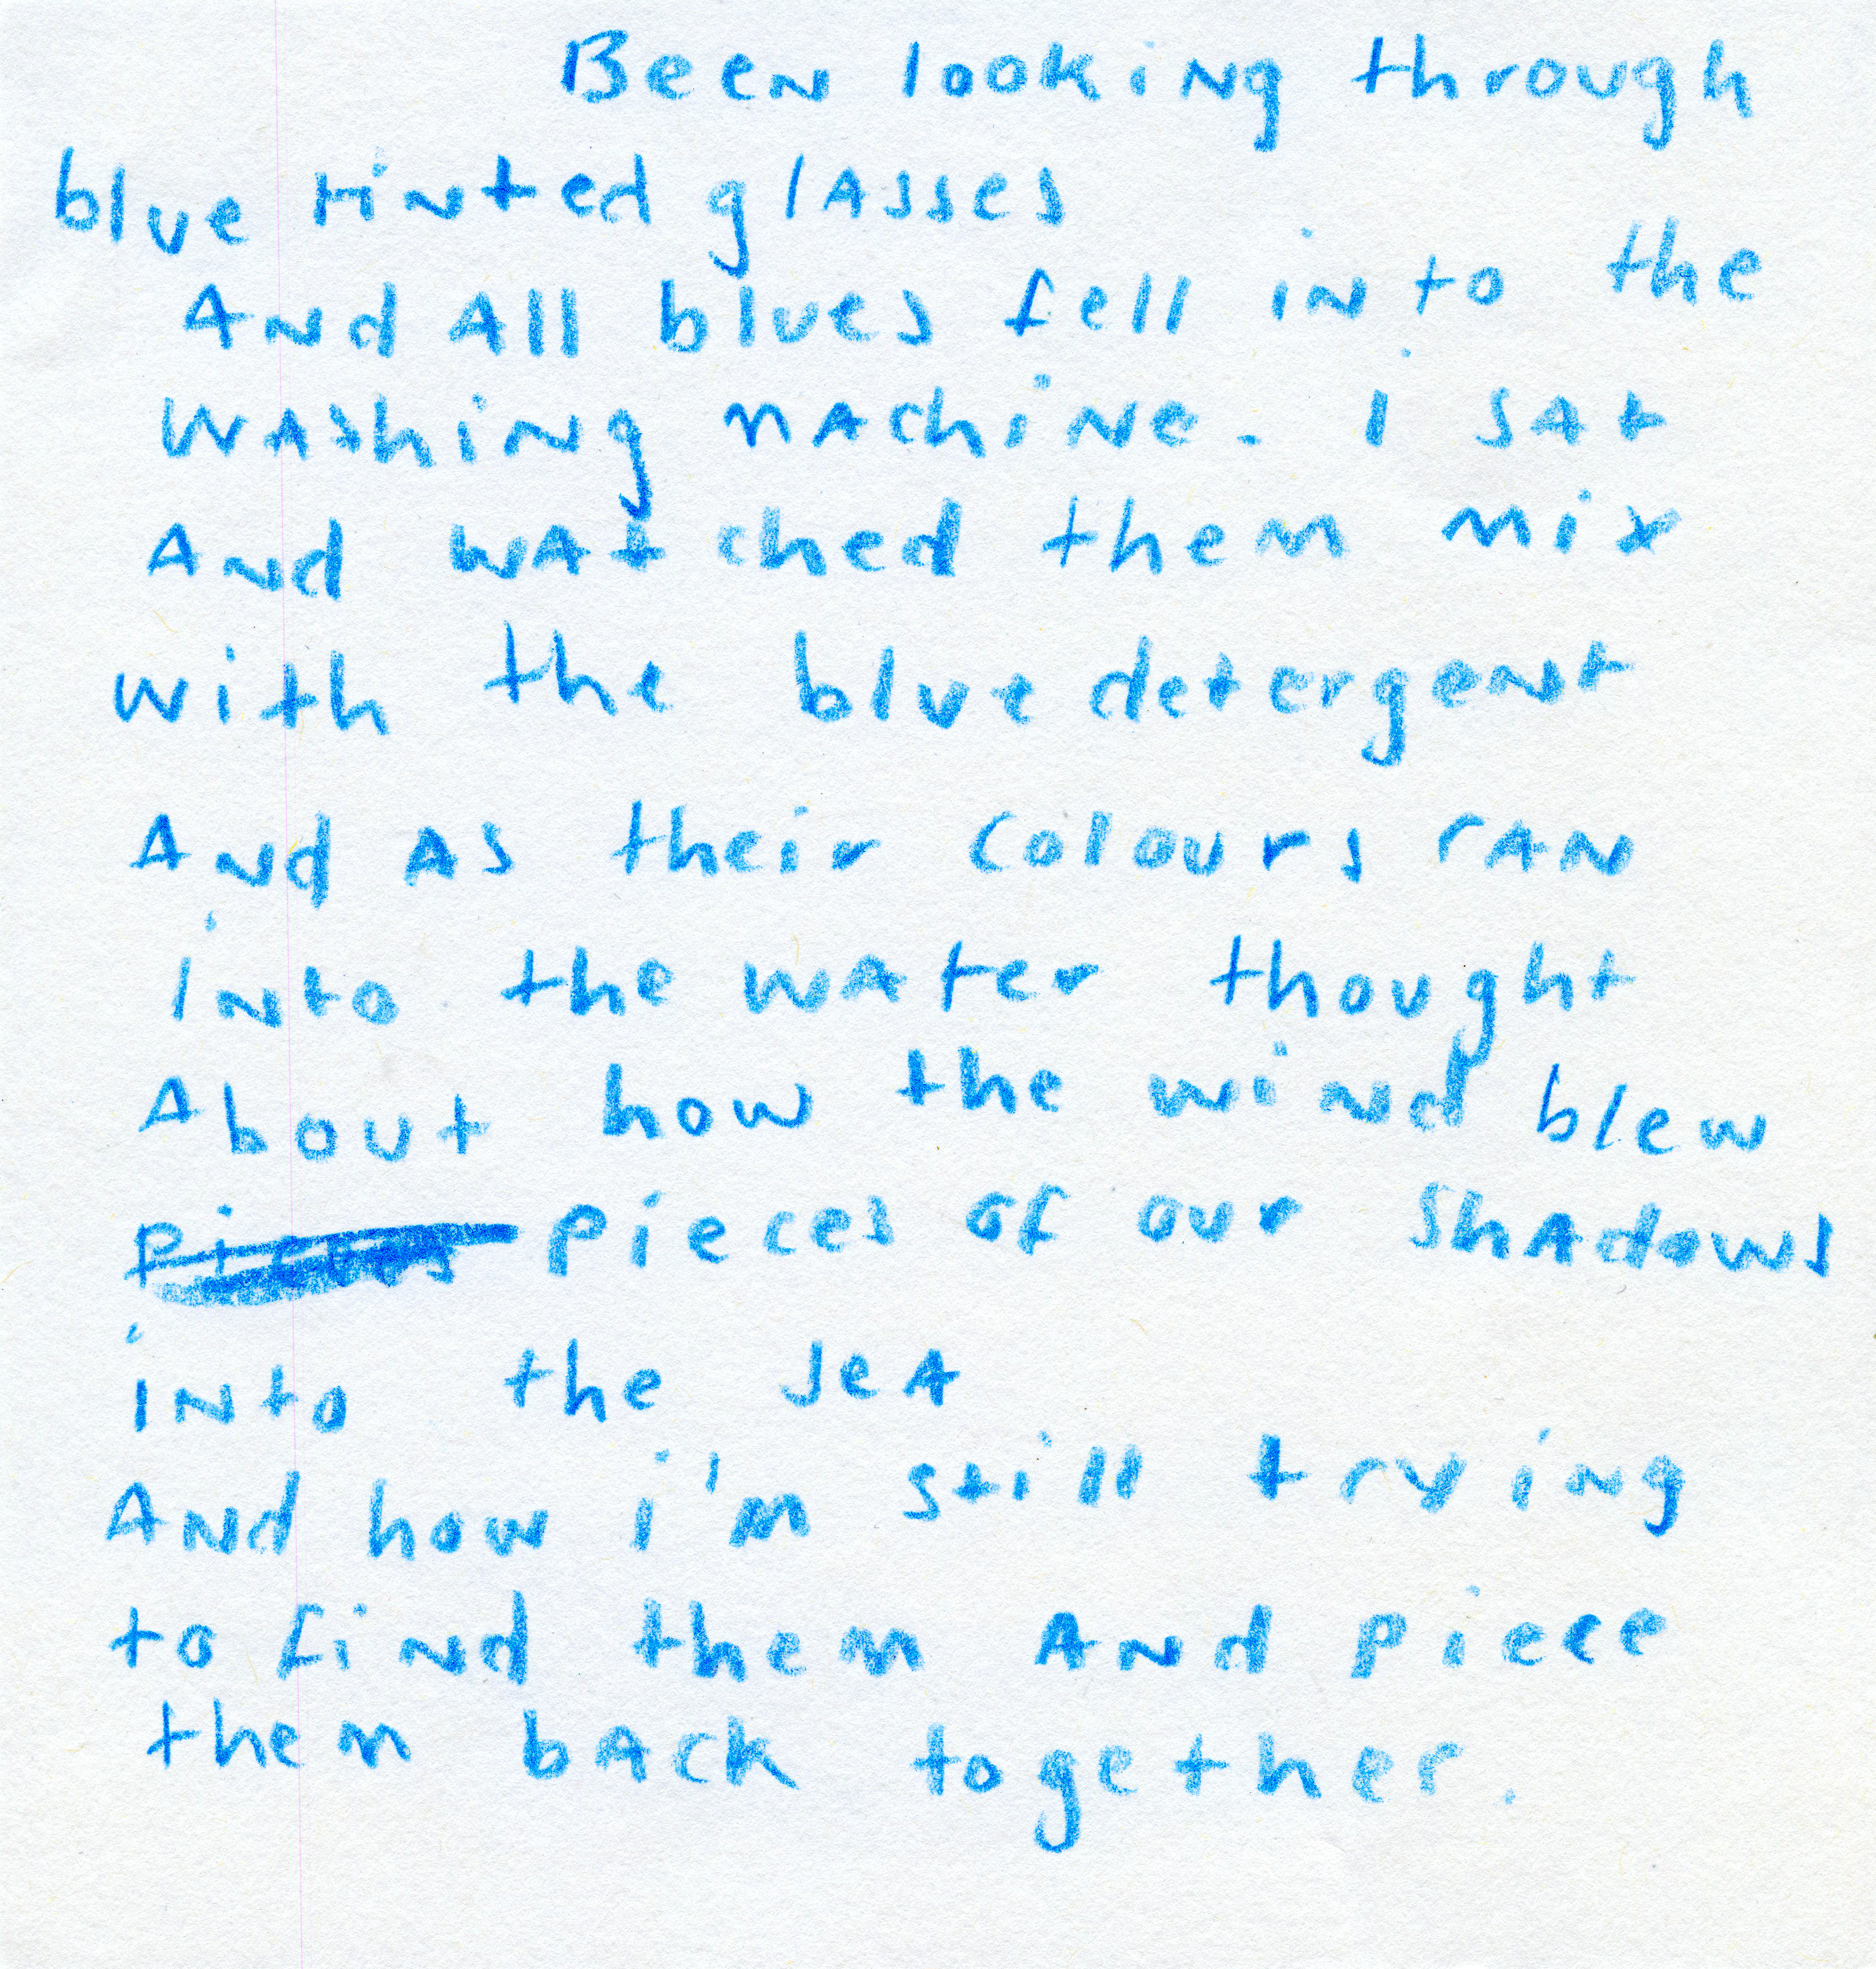 Been looking through
blue tinted glasses
And All blues fell into the
washing machine. I sat
And watched them mix
with the blue detergent
And as their colours ran
into the water thought
About how the wind blew
pieces of our shadows
into the sea
And how i'm still trying
to find them and piece
them back together.